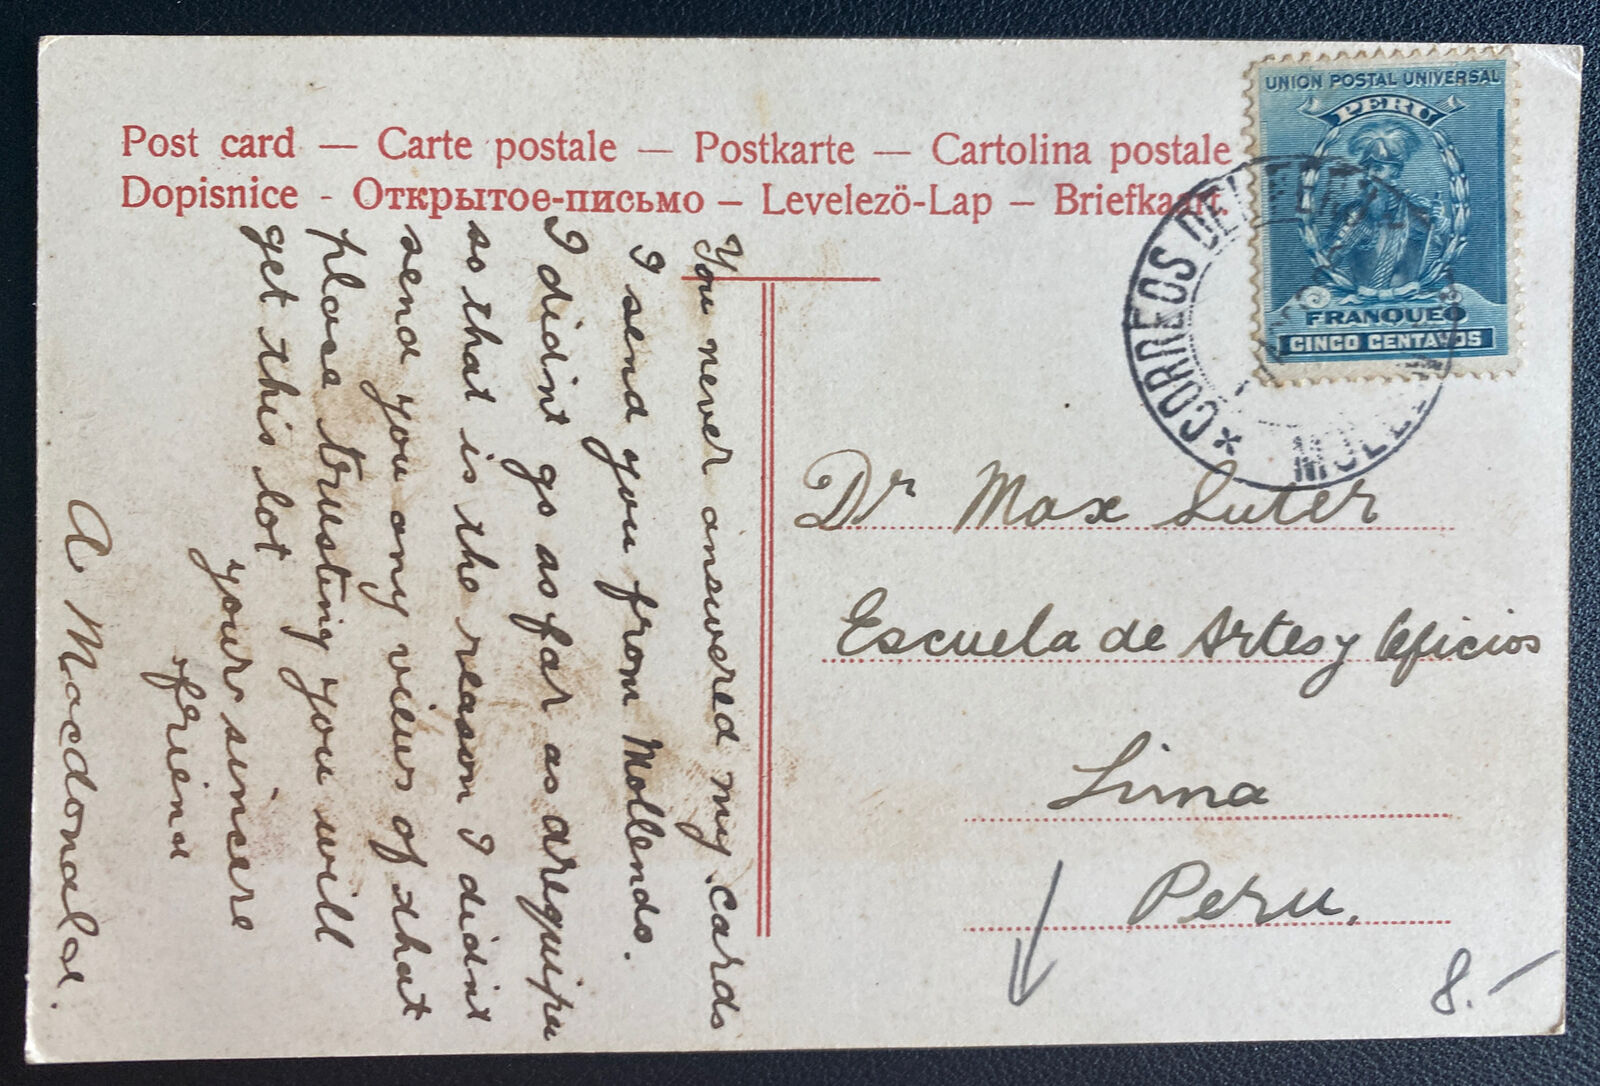 Post card — Carte postale — Postkarte — Cartolina postale
Dopisnice - Открытое-письмо – Levelezö-Lap – Briefkaart.
UNION POSTAL UNIVERSAL
PERU
FRANQUEO
CINCO CENTAVOS
*CORREOS DEL
MOLLEN
You never answered my cards
I send you from Mollendo.
I didnt go as far as arequipa
so that is the reason I didnt
send you any views of that
place trusting you will
get this lot
your sincere
friend
A Macdonald.
Dr Max Suter
Escuela de Artes y Oficios
Lima
Peru.
8.-